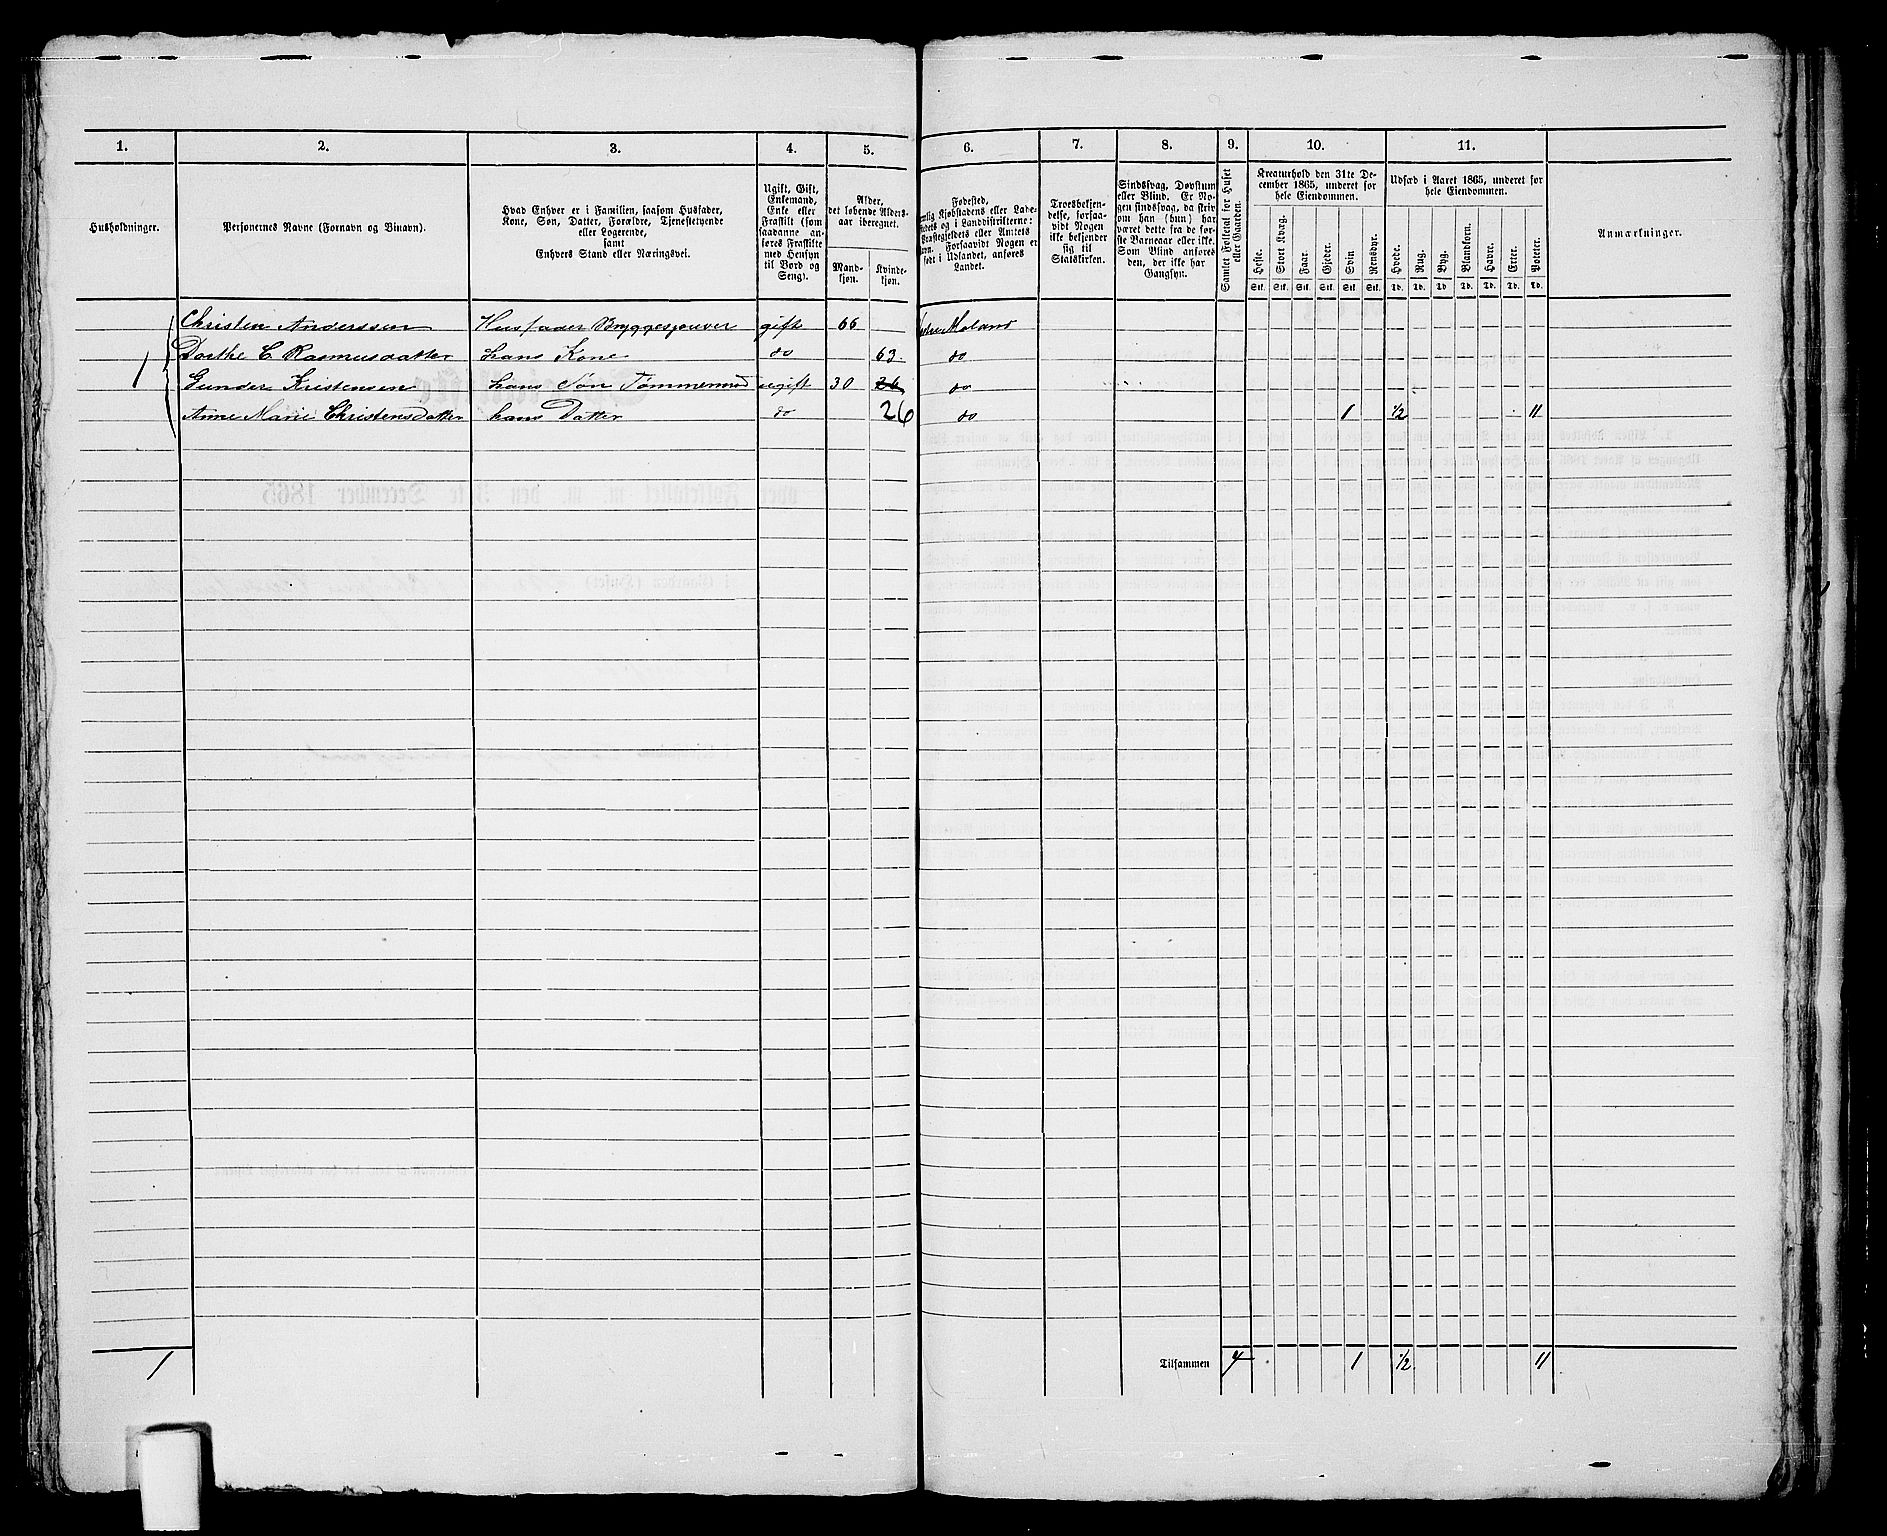 1. 2. 3. 4. 5. 6. 7. 8. 9. 10. 11.
Husholdninger.
Personernes Navne (Fornavn og Binavn).
Hvad Enhver er i Familien, saasom Husfader,
Kone, Søn, Datter, Forældre, Tjenestetyende
eller Logerende,
samt
Enhvers Stand eller Næringsvei.
Ugift, Gift,
Enkemand,
Enke eller
Fraskilt (som
saadanne an-
føres Fraskilte
med Hensyn
til Bord og
Seng).
Alder,
det løbende Alders-
aar iberegnet.
Mand-
kjøn.
Kvinde-
kjøn.
Fødested,
Kjøbstadens eller Lade-
og i Landdistrikterne:
eller Amtets
Forsaavidt Nogen er
født i Udlandet, anføres
Landet.
Troesbekjen-
delse, forsaa-
vidt Nogen
ikke bekjender
sig til
Statskirken.
Sindssvag, Døvstum
eller Blind. Er No-
gen sindssvag, da skriv
om han (hun) har
været dette fra de før-
ste Barneaar eller ikke.
Som Blind anføres
den, der ikke har
Gangsyn.
Samlet Folketal for Huset
eller Gaarden.
Kreaturhold den 31te De-
cember 1865, underet for
hele Eiendommen.
Heste. Stort Kvæg. Faar. Gjeder. Svin Rensdyr.
Stk. Stk. Stk. Stk. Stk. Stk.
Udsæd i Aaret 1865, underet for
hele Eiendommen.
Hvede. Rug. Byg. Blandkorn. Havre. Erter. Poteter.
Td. Td. Td. Td. Td. Td. Td.
Anmærkninger.
Christen Anderssen Husfader Bryggesjouer gift 66 Moland
Dorthe C. Rasmusdatter hans Kone do 63. do
1 Gunder Kristensen hans Søn Tømmermd ugift 30 26 do
Anne Marie Christensdatter hans Datter do 26 do 1 1/2 11
1 Tilsammen 4 1 1/2 11